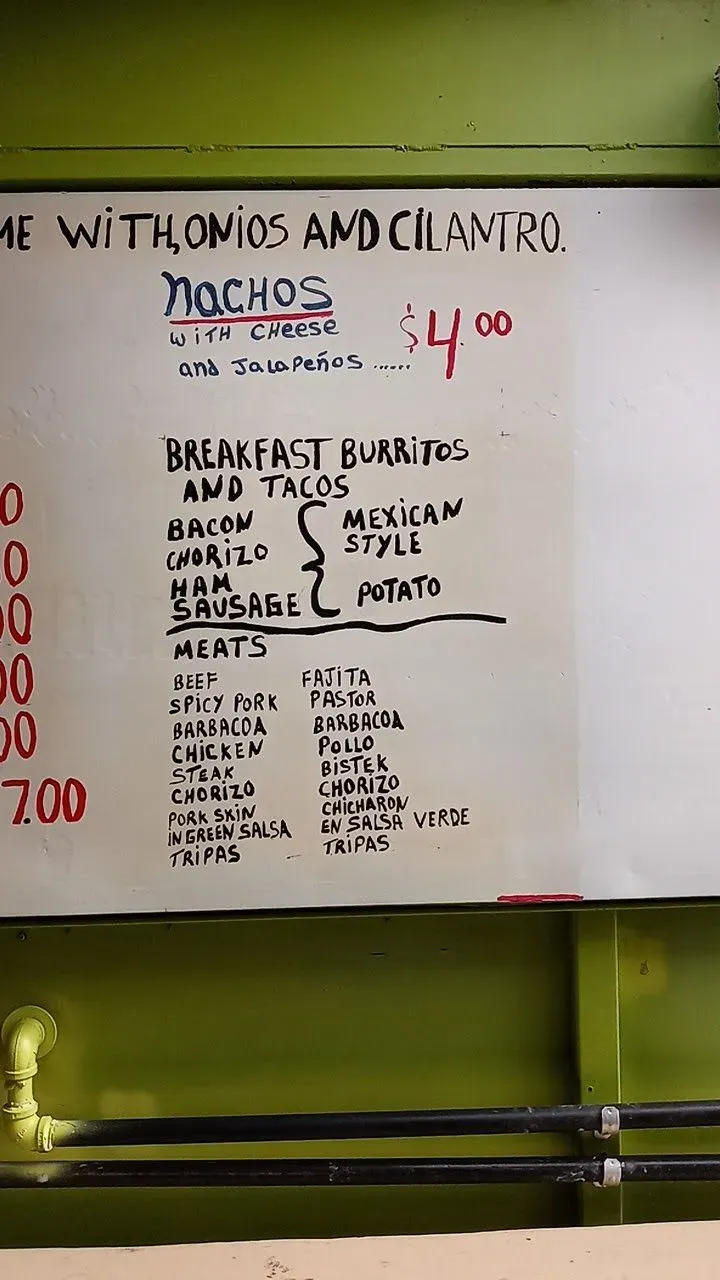 ME WiTH,ONiOS AND CiLANTRO.
NACHOS
WiTH CHeese
and JaLaPeños ......
$4.00
BREAKFAST BURRiTOS
AND TACOS
BACON
CHORiZO
HAM
SAUSAGE
MEXiCAN
STYLE
POTATO
MEATS
BEEF FAJiTA
SPiCY PORK PASTOR
BARBACOA BARBACOA
CHiCKEN POLLO
STEAK BiSTEK
CHORiZO CHORiZO
PORK SKiN CHiCHARON
iN GREEN SALSA EN SALSA VERDE
TRiPAS TRiPAS
0
0
00
00
00
7.00